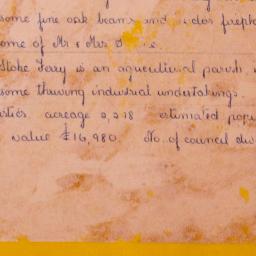 some fine oak beams and
ome of Mr & Mrs
Stoke Ferry is an agricultural parish
some thriving industrial undertakings.
acreage 2,218 estimated popu
value £16,980. No. of council dw